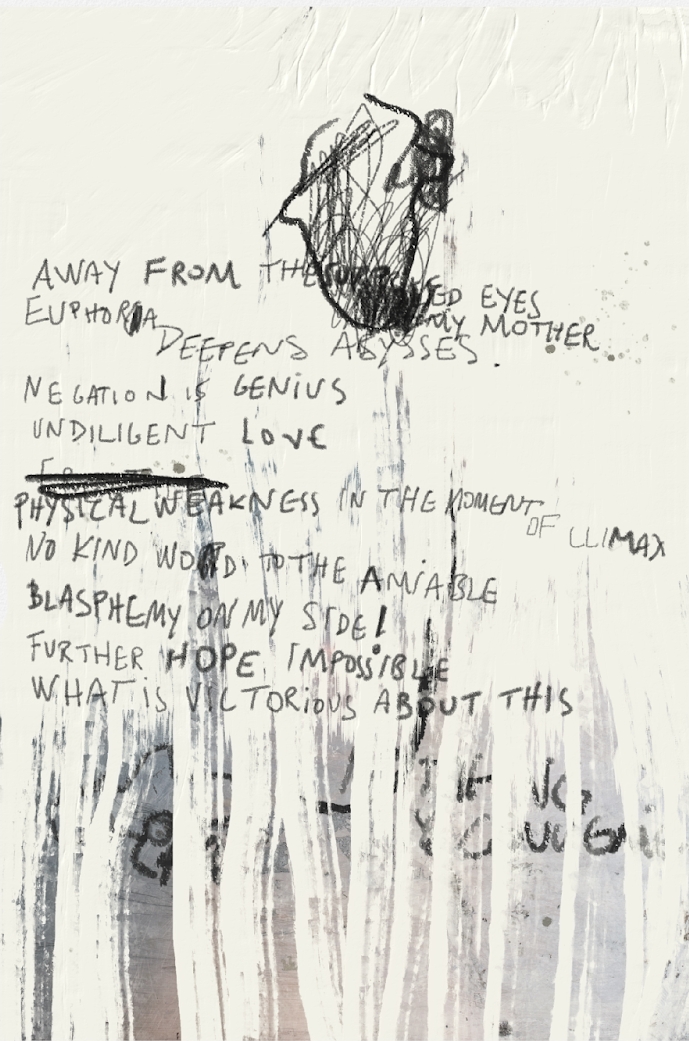 AWAY FROM THE SURPRISED EYES
OF MY MOTHER
EUPHORIA
DEEPENS ABYSSES.
NEGATION IS GENIUS
UNDILIGENT LOVE
PHYSICAL WEAKNESS IN THE MOMENT
OF CLIMAX
NO KIND WORD TO THE AMIABLE
BLASPHEMY ON MY SIDE!
FURTHER HOPE IMPOSSIBLE
WHAT IS VICTORIOUS ABOUT THIS